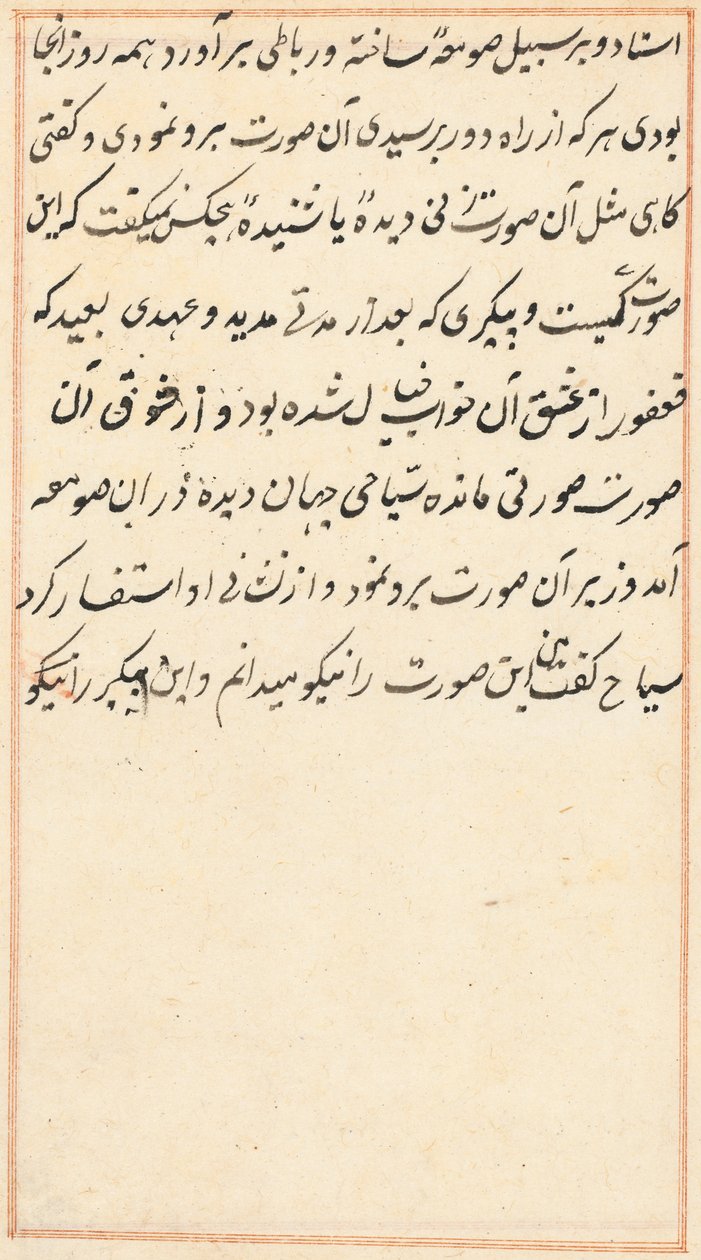 استاد و بر سبیل صومعهٔ ساخته و رباطی بر آورد همه روز انجا
بودی هر که از راه دور برسیدی آن صورت برو نمودی و کفتی
کاهی مثل آن صورت زنی دیدهٔ یا شنیدهٔ هیچکس نمیکفت که این
صورت کیست و پیکری که بعد از مدتے مدید و عهدی بعید که
فغفور از عشق آن خواب خیال شده بود و از شوق آن
صورت صورتی مانده سیّاحی جهان دیده در ان صومعه
آمد وزیر آن صورت برو نمود و از نشانی او استفسار کرد
سیاح کفت من این صورت را نیکو میدانم و این پیکر را نیکو